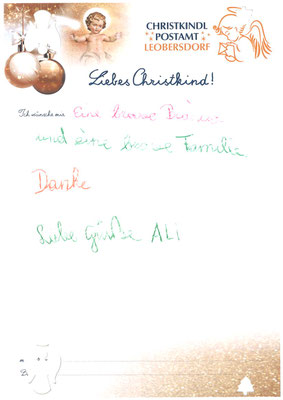 CHRISTKINDL
POSTAMT
LEOBERSDORF
Liebes Christkind!
Ich wünsche mir Eine
und eine Familie
Danke
Liebe Grüße ALI